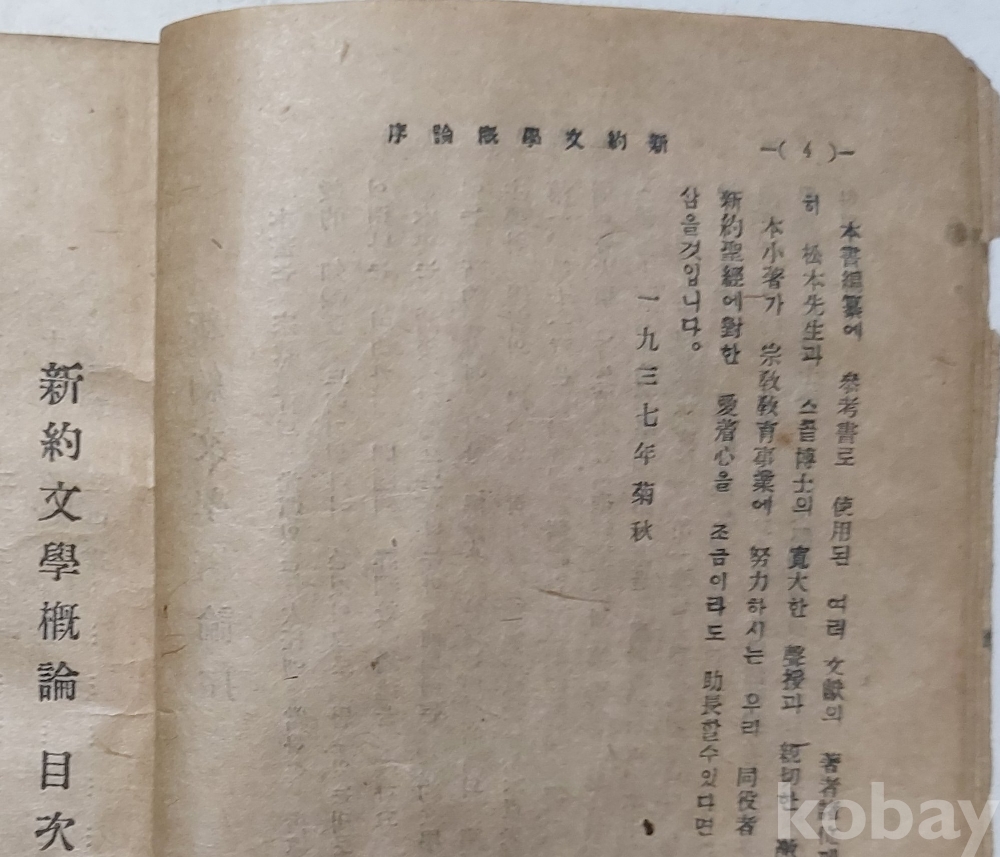 —( 4 )—
新約文學槪論序
本書編纂에 參考書로 使用된 여러 文獻의 著者
히 松本先生과 스콜博士의 寬大한 聲援과 親切한
本小著가 宗敎敎育事業에 努力하시는 우리 同役者
新約聖經에對한 愛着心을 조금이라도 助長할수있다면
삼을것입니다。
一九三七年菊秋
新約文學槪論 目次
kobay